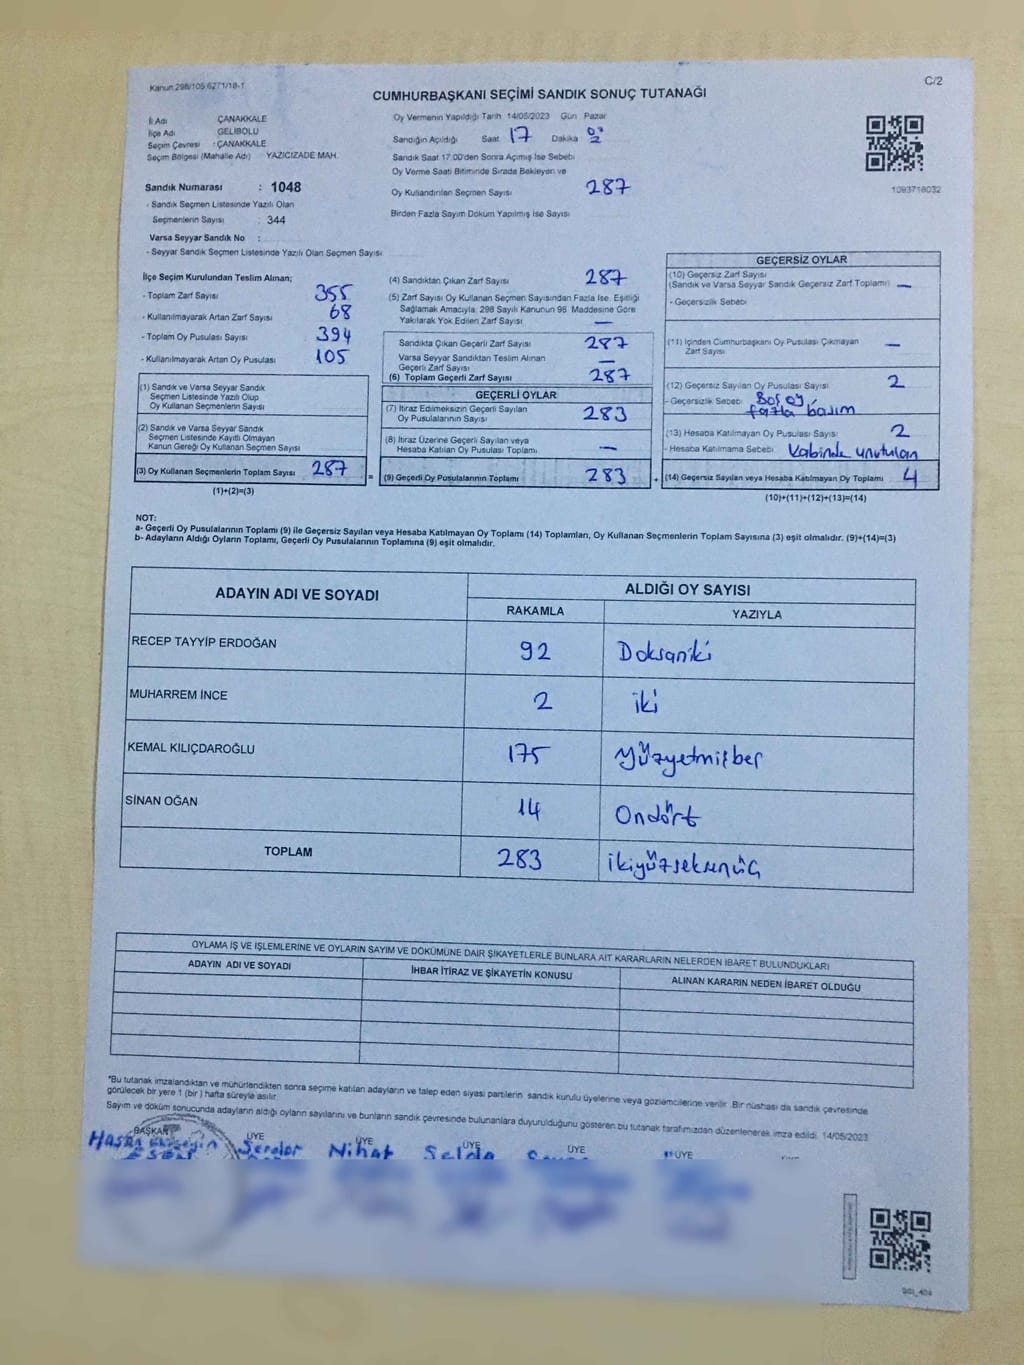 Kanun 298/105;6271/18-1
C/2
CUMHURBAŞKANI SEÇİMİ SANDIK SONUÇ TUTANAĞI
İl Adı ÇANAKKALE
İlçe Adı GELİBOLU
Seçim Çevresi : ÇANAKKALE
Seçim Bölgesi (Mahalle Adı) YAZICIZADE MAH.
Sandık Numarası : 1048
- Sandık Seçmen Listesinde Yazılı Olan
Seçmenlerin Sayısı : 344
Varsa Seyyar Sandık No :
- Seyyar Sandık Seçmen Listesinde Yazılı Olan Seçmen Sayısı
Oy Vermenin Yapıldığı Tarih 14/05/2023 Gün Pazar
Sandığın Açıldığı Saat 17 Dakika
Sandık Saat 17.00'den Sonra Açımış İse Sebebi
Oy Verme Saati Bitiminde Sırada Bekleyen ve
Oy Kullandırılan Seçmen Sayısı 287
Birden Fazla Sayım Döküm Yapılmış İse Sayısı
1093718032
İlçe Seçim Kurulundan Teslim Alınan;
- Toplam Zarf Sayısı 355
- Kullanılmayarak Artan Zarf Sayısı 68
- Toplam Oy Pusulası Sayısı 394
- Kullanılmayarak Artan Oy Pusulası 105
(1) Sandık ve Varsa Seyyar Sandık
Seçmen Listesinde Yazılı Olup
Oy Kullanan Seçmenlerin Sayısı
(2) Sandık ve Varsa Seyyar Sandık
Seçmen Listesinde Kayıtlı Olmayan
Kanun Gereği Oy Kullanan Seçmen Sayısı
(3) Oy Kullanan Seçmenlerin Toplam Sayısı 287 =
(1)+(2)=(3)
(4) Sandıktan Çıkan Zarf Sayısı 287
(5) Zarf Sayısı Oy Kullanan Seçmen Sayısından Fazla İse, Eşitliği
Sağlamak Amacıyla, 298 Sayılı Kanunun 98. Maddesine Göre
Yakılarak Yok Edilen Zarf Sayısı —
Sandıkta Çıkan Geçerli Zarf Sayısı 287
Varsa Seyyar Sandıktan Teslim Alınan
Geçerli Zarf Sayısı —
(6) Toplam Geçerli Zarf Sayısı 287
GEÇERLİ OYLAR
(7) İtiraz Edilmeksizin Geçerli Sayılan
Oy Pusulalarının Sayısı 283
(8) İtiraz Üzerine Geçerli Sayılan veya
Hesaba Katılan Oy Pusulası Toplamı —
(9) Geçerli Oy Pusulalarının Toplamı 283 +
GEÇERSİZ OYLAR
(10) Geçersiz Zarf Sayısı
(Sandık ve Varsa Seyyar Sandık Geçersiz Zarf Toplamı) —
- Geçersizlik Sebebi
(11) İçinden Cumhurbaşkanı Oy Pusulası Çıkmayan
Zarf Sayısı —
(12) Geçersiz Sayılan Oy Pusulası Sayısı 2
- Geçersizlik Sebebi Boş oy,
fazla basım
(13) Hesaba Katılmayan Oy Pusulası Sayısı 2
- Hesaba Katılmama Sebebi Kabinde unutulan
(14) Geçersiz Sayılan veya Hesaba Katılmayan Oy Toplamı 4
(10)+(11)+(12)+(13)=(14)
NOT:
a- Geçerli Oy Pusulalarının Toplamı (9) ile Geçersiz Sayılan veya Hesaba Katılmayan Oy Toplamı (14) Toplamları, Oy Kullanan Seçmenlerin Toplam Sayısına (3) eşit olmalıdır. (9)+(14)=(3)
b- Adayların Aldığı Oyların Toplamı, Geçerli Oy Pusulalarının Toplamına (9) eşit olmalıdır.
ADAYIN ADI VE SOYADI ALDIĞI OY SAYISI
RAKAMLA YAZIYLA
RECEP TAYYİP ERDOĞAN 92 Doksaniki
MUHARREM İNCE 2 iki
KEMAL KILIÇDAROĞLU 175 yüzyetmişbeş
SİNAN OĞAN 14 Ondört
TOPLAM 283 ikiyüzseksenüç
OYLAMA İŞ VE İŞLEMLERİNE VE OYLARIN SAYIM VE DÖKÜMÜNE DAİR ŞİKAYETLERLE BUNLARA AİT KARARLARIN NELERDEN İBARET BULUNDUKLARI
ADAYIN ADI VE SOYADI İHBAR İTİRAZ VE ŞİKAYETİN KONUSU ALINAN KARARIN NEDEN İBARET OLDUĞU
*Bu tutanak imzalandıktan ve mühürlendikten sonra seçime katılan adayların ve talep eden siyasi partilerin sandık kurulu üyelerine veya gözlemcilerine verilir. Bir nüshası da sandık çevresinde
görülecek bir yere 1 (bir) hafta süreyle asılır.
Sayım ve döküm sonucunda adayların aldığı oyların sayılarını ve bunların sandık çevresinde bulunanlara duyurulduğunu gösteren bu tutanak tarafımızdan düzenlenerek imza edildi. 14/05/2023
BAŞKAN ÜYE ÜYE ÜYE ÜYE ÜYE
Hasan Serdar Nihat Selda